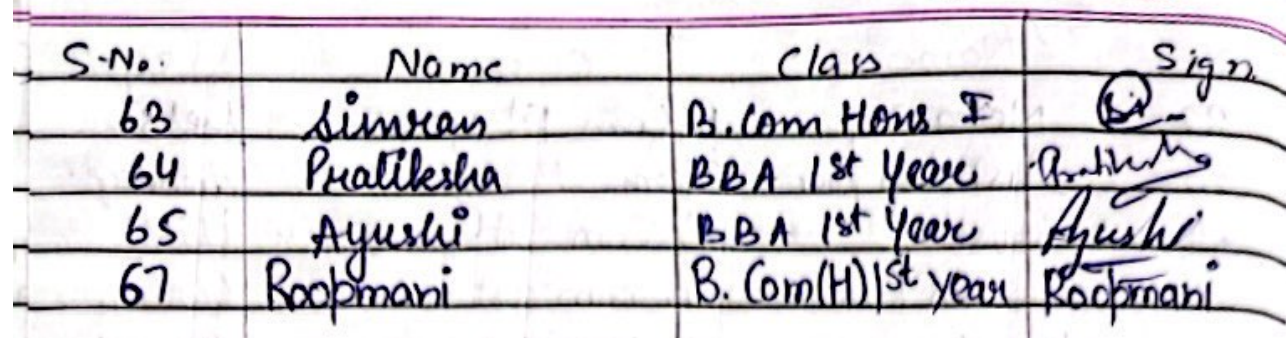 S.No. Name Class Sign
63 Simran B.Com Hons I
64 Pratiksha BBA 1st Year Pratiksha
65 Ayushi BBA 1st Year Ayushi
67 Roopmani B. Com(H) 1st year Roopmani